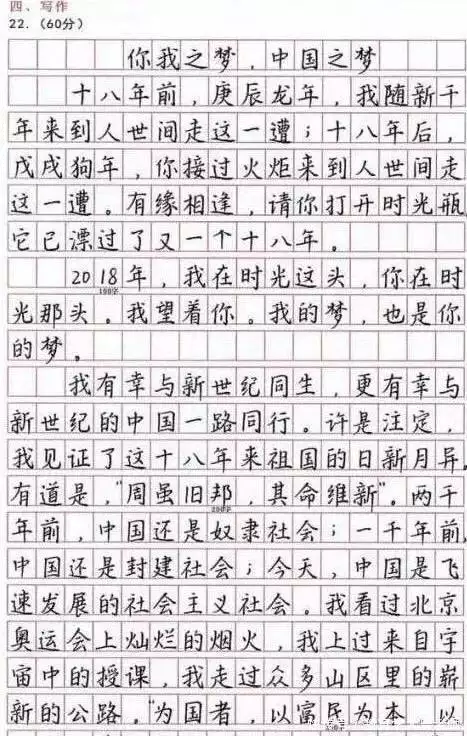 四、写作
22.（60分）
你我之梦，中国之梦
十八年前，庚辰龙年，我随新千
年来到人世间走这一遭；十八年后，
戊戌狗年，你接过火炬来到人世间走
这一遭。有缘相逢，请你打开时光瓶
它已漂过了又一个十八年。
2018年，我在时光这头，你在时
100字
光那头。我望着你。我的梦，也是你
的梦。
我有幸与新世纪同生，更有幸与
新世纪的中国一路同行。许是注定，
我见证了这十八年来祖国的日新月异，
有道是，“周虽旧邦，其命维新”。两千
200字
年前，中国还是奴隶社会；一千年前，
中国还是封建社会；今天，中国是飞
速发展的社会主义社会。我看过北京
奥运会上灿烂的烟火，我上过来自宇
宙中的授课，我走过众多山区里的崭
新的公路。“为国者，以富民为本，以